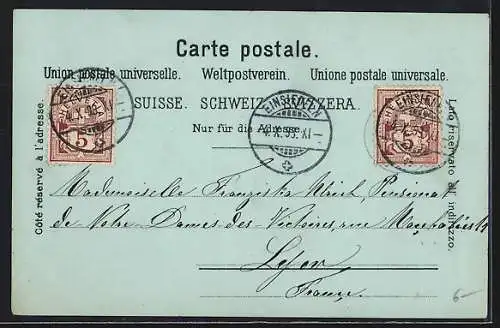 Carte postale.
Union postale universelle. Weltpostverein. Unione postale universale.
SUISSE. SCHWEIZ. SVIZZERA.
Nur für die Adresse.
Côté réservé à l'adresse.
Lato riservato all'indirizzo.
EINSIEDELN
4.X.99.XI
EINSIEDELN
5
5
Mademoiselle Franziska Ulrich, Pensionat
de Notre-Dames-des-Victoires, rue
France.
6-